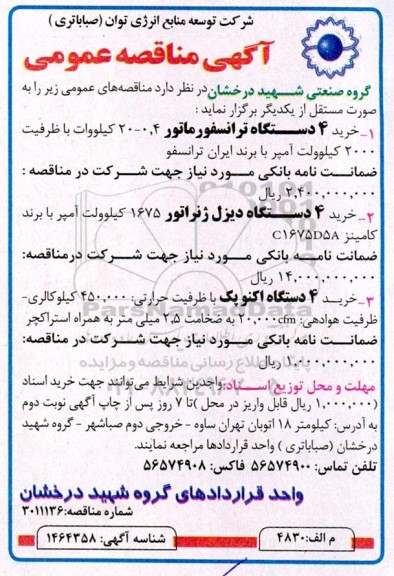 شرکت توسعه منابع انرژی توان (صباباتری )
آگهی مناقصه عمومی
گروه صنعتی شهید درخشان در نظر دارد مناقصه‌های عمومی زیر را به
صورت مستقل از یکدیگر برگزار نماید :
۱_ خرید ۴ دستگاه ترانسفورماتور ۰,۴-۲۰ کیلووات با ظرفیت
۲۰۰۰ کیلوولت آمپر با برند ایران ترانسفو
ضمانت نامه بانکی مورد نیاز جهت شرکت در مناقصه :
۲,۴۰۰,۰۰۰,۰۰۰ ریال
۲_ خرید ۴ دستگاه دیزل ژنراتور ۱۶۷۵ کیلوولت آمپر با برند
کامینز C۱۶۷۵D۵A
ضمانت نامه بانکی مورد نیاز جهت شرکت در مناقصه:
۱۴,۰۰۰,۰۰۰,۰۰۰ ریال
۳_ خرید ۴ دستگاه اکنوپک با ظرفیت حرارتی: ۴۵۰,۰۰۰ کیلوکالری-
ظرفیت هوادهی: ۲۰,۰۰۰cfm به ضخامت ۲,۵ میلی متر به همراه استراکچر
ضمانت نامه بانکی مورد نیاز جهت شرکت در مناقصه:
ریال
مهلت و محل توزیع اسناد: واجدین شرایط می‌توانند جهت خرید اسناد
(۱,۰۰۰,۰۰۰ ریال قابل واریز در محل )تا ۷ روز پس از چاپ آگهی نوبت دوم
به آدرس: کیلومتر ۱۸ اتوبان تهران ساوه - خروجی دوم صباشهر - گروه شهید
درخشان (صباباتری ) واحد قراردادها مراجعه نمایند.
تلفن تماس: ۵۶۵۷۴۹۰۰ فاکس: ۵۶۵۷۴۹۰۸
واحد قراردادهای گروه شهید درخشان
شماره مناقصه: ۳۰۱۱۱۳۶
م الف: ۴۸۳۰
شناسه آگهی: ۱۴۶۴۳۵۸
ParsNamadData
پایگاه اطلاع رسانی مناقصه و مزایده